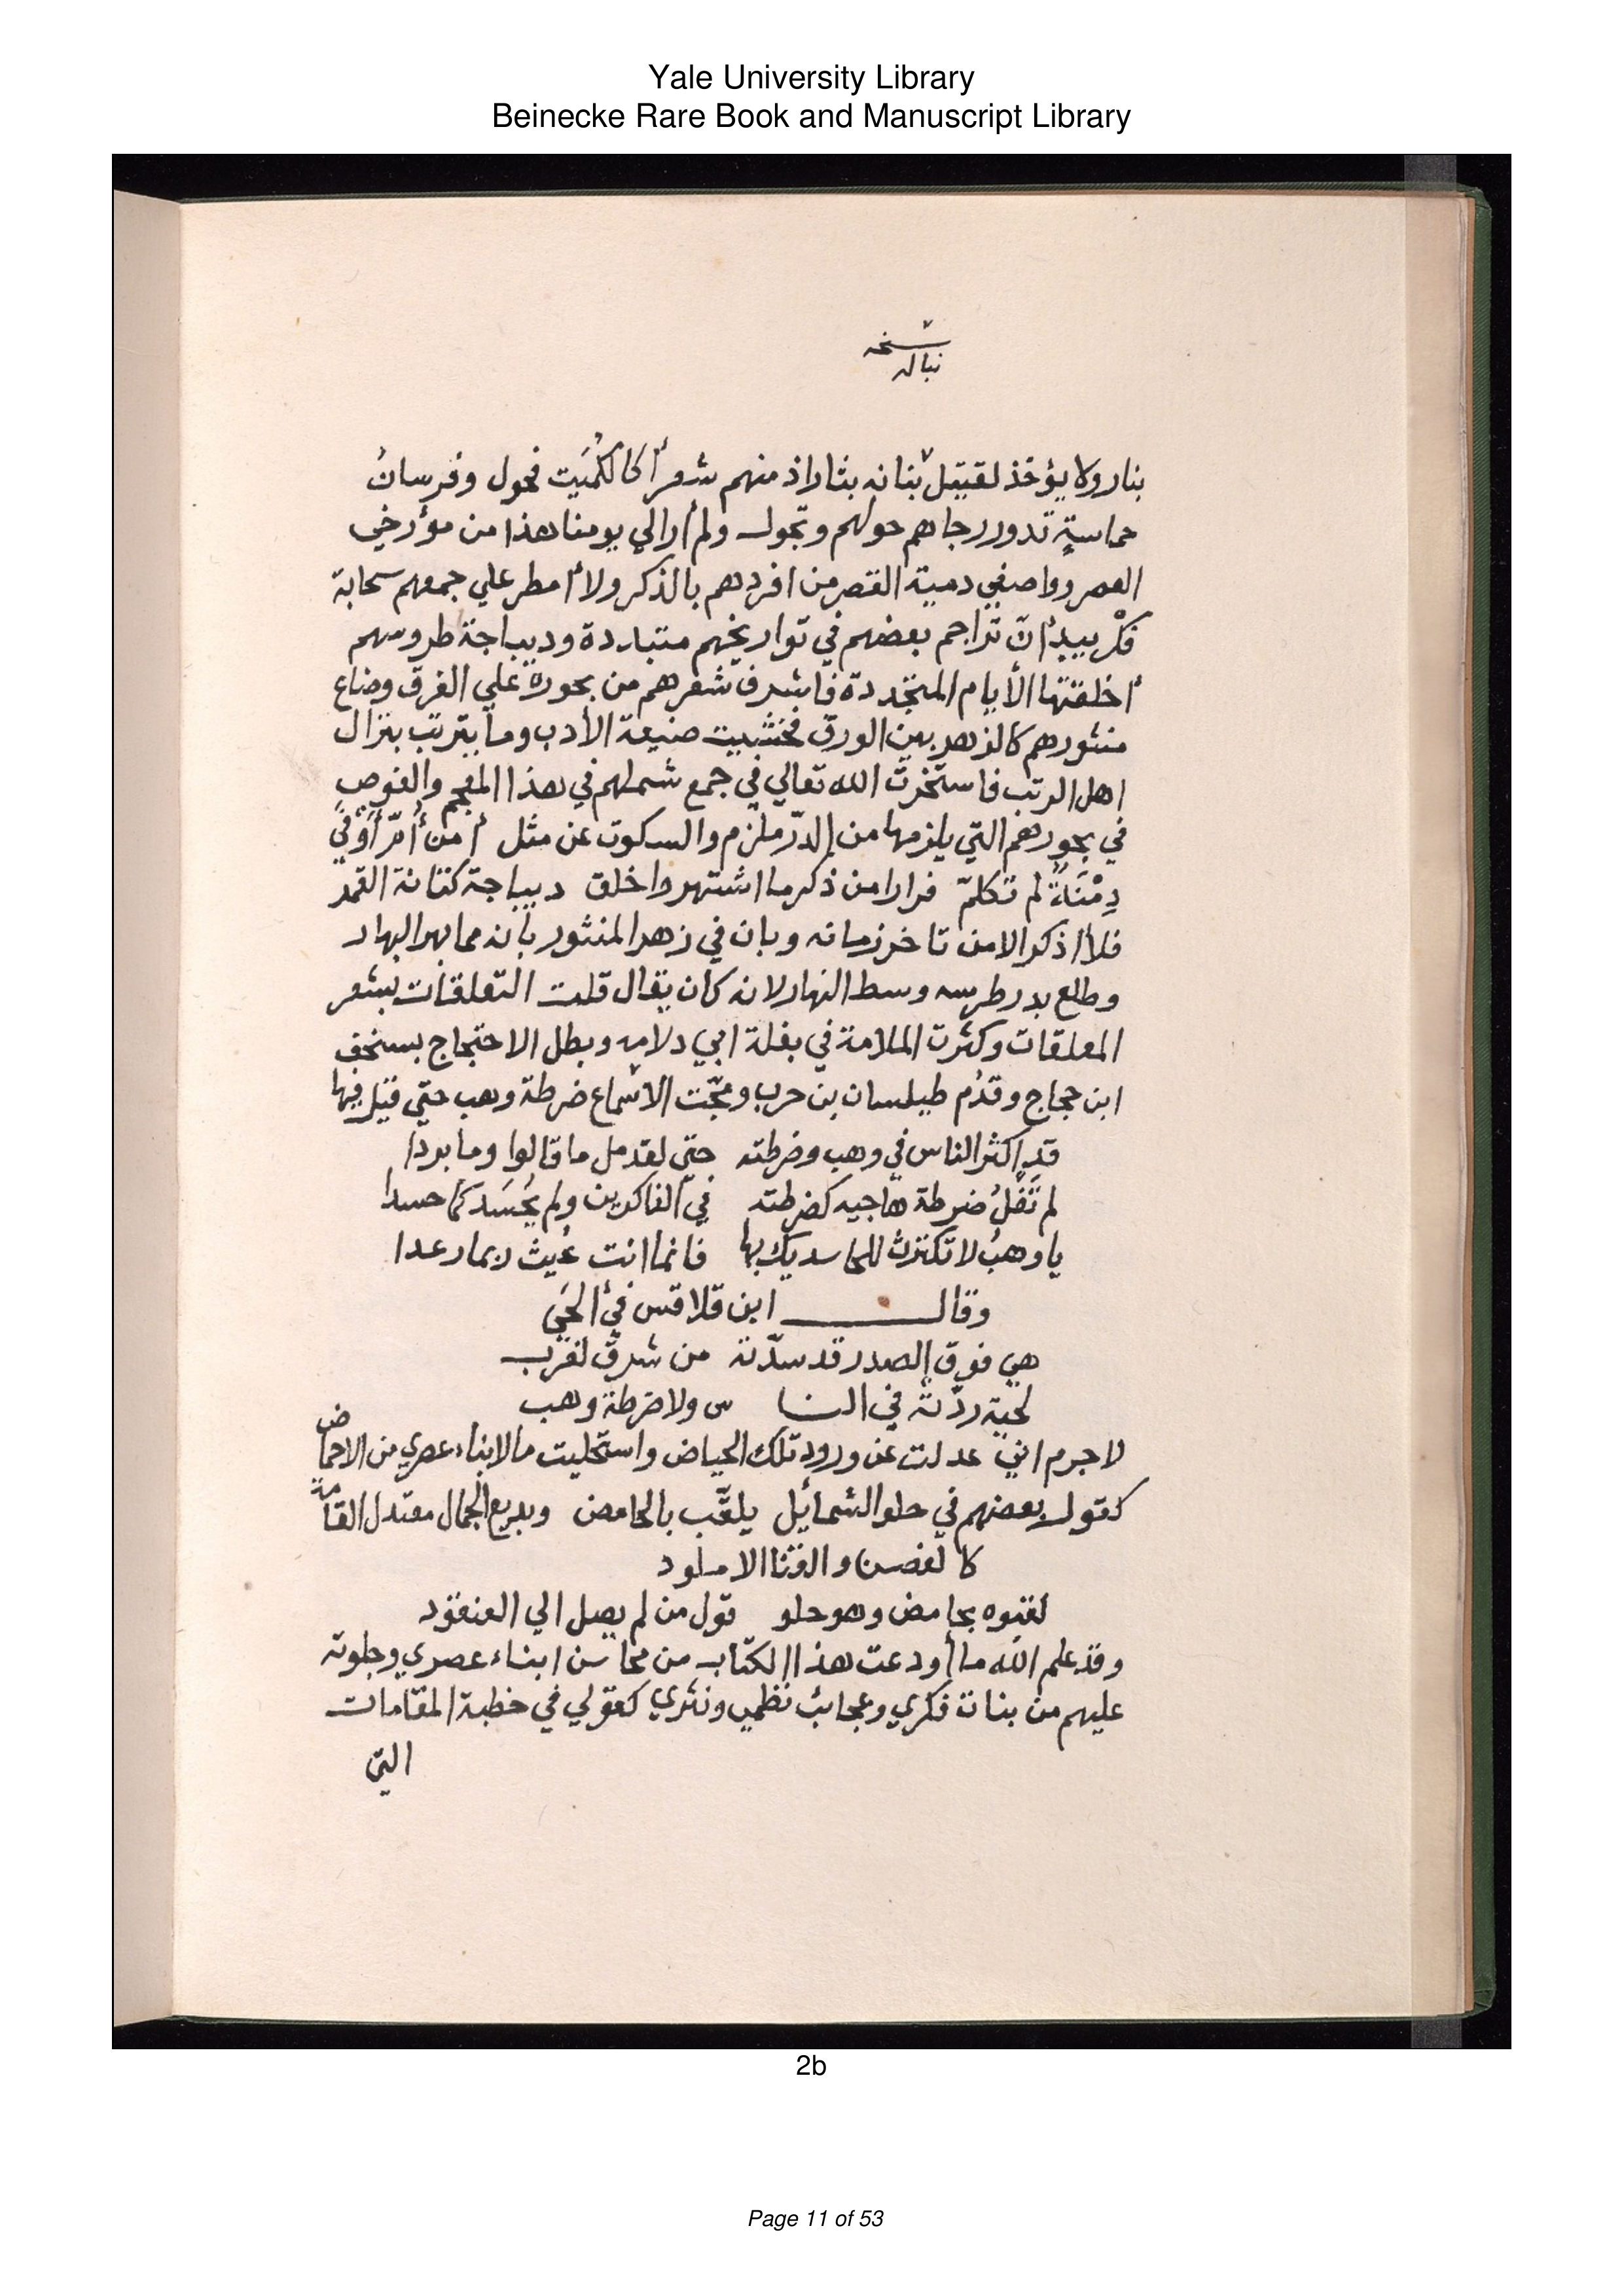 Yale University Library
Beinecke Rare Book and Manuscript Library
نسخه
نباله
بنار ولا يؤخذ لقتيل بنانه بثار اذ منهم شعرأ كالكُمَيت فحول وفرسانُ
حماسةٍ تدور رحاهم حولهم وتجول ولم أر الي يومنا هذا من مؤرخي
العصر وواصفي دمية القصر من افردهم بالذكر ولا أمطر علي جمعهم سحابة
فكْر بيد أنّ تراجم بعضهم في تواريخهم متبارده وديباجة طروسهم
أخلقتها الأيام المتجددة فاشرف شعرهم من بحوره علي الغرق وضاع
منثورهم كالزهر بين الورق فخشيت ضيعة الأدب وما يترتب بنزال
اهل الرتب فاستخرت الله تعالي في جمع شملهم في هذا المعجم والغوص
في بحورهم التي يلزمها من الدّر ملزم والسكوت عن مثل أمن أمّ أوفي
دِمْنَةٌ لم تكلّم فرارا من ذكر ما اشتهر واخلق ديباجة كتانة القمر
فلا أذكر الا من تاخر زمانه وبان في زهر المنثور بانه مما بهر البهار
وطلع بدر طرسه وسط النهار لانه كان يقال قلت التعلقات بشعر
المعلقات وكثرت الملامة في بغلة ابي دلامه وبطل الاحتجاج بسخف
ابن حجاج وقدُم طيلسان بن حرب ومجّت الاسماع ضرطة وهب حتي قيل فيها
قد اكثر الناس في وهب وضرطته حتي لقد مل ما قالوا وما بردا
لم تَعْلُ ضرطة هاجيه كضرطته في الذاكرين ولم يُحسَد كما حسدا
يا وهبُ لا تكترث للحاسديك بها فانما انت غيث ربما رعدا
وقال ابن قلاقس في ألحَي
هي فوق الصدر قد سدّته من شرق لغرب
لحية ردّته في النا س ولا ضرطة وهب
لا جرم اني عدلت عن ورود تلك الحياض واستحليت ما لابناء عصري من الاحماض
كقول بعضهم في حلو الشمائيل يلقّب بالحامض وبديع الجمال معتدل القامة
كالغصن والقنا الاملود
لقبوه بحامض وهو حلو قول من لم يصل الي العنقود
وقد علم الله ما أودعت هذا الكتاب من محاسن ابناء عصري وجلوته
عليهم من بنات فكري وعجائب نظمي ونثري كقولي في خطبة المقامات
التي
2b
Page 11 of 53